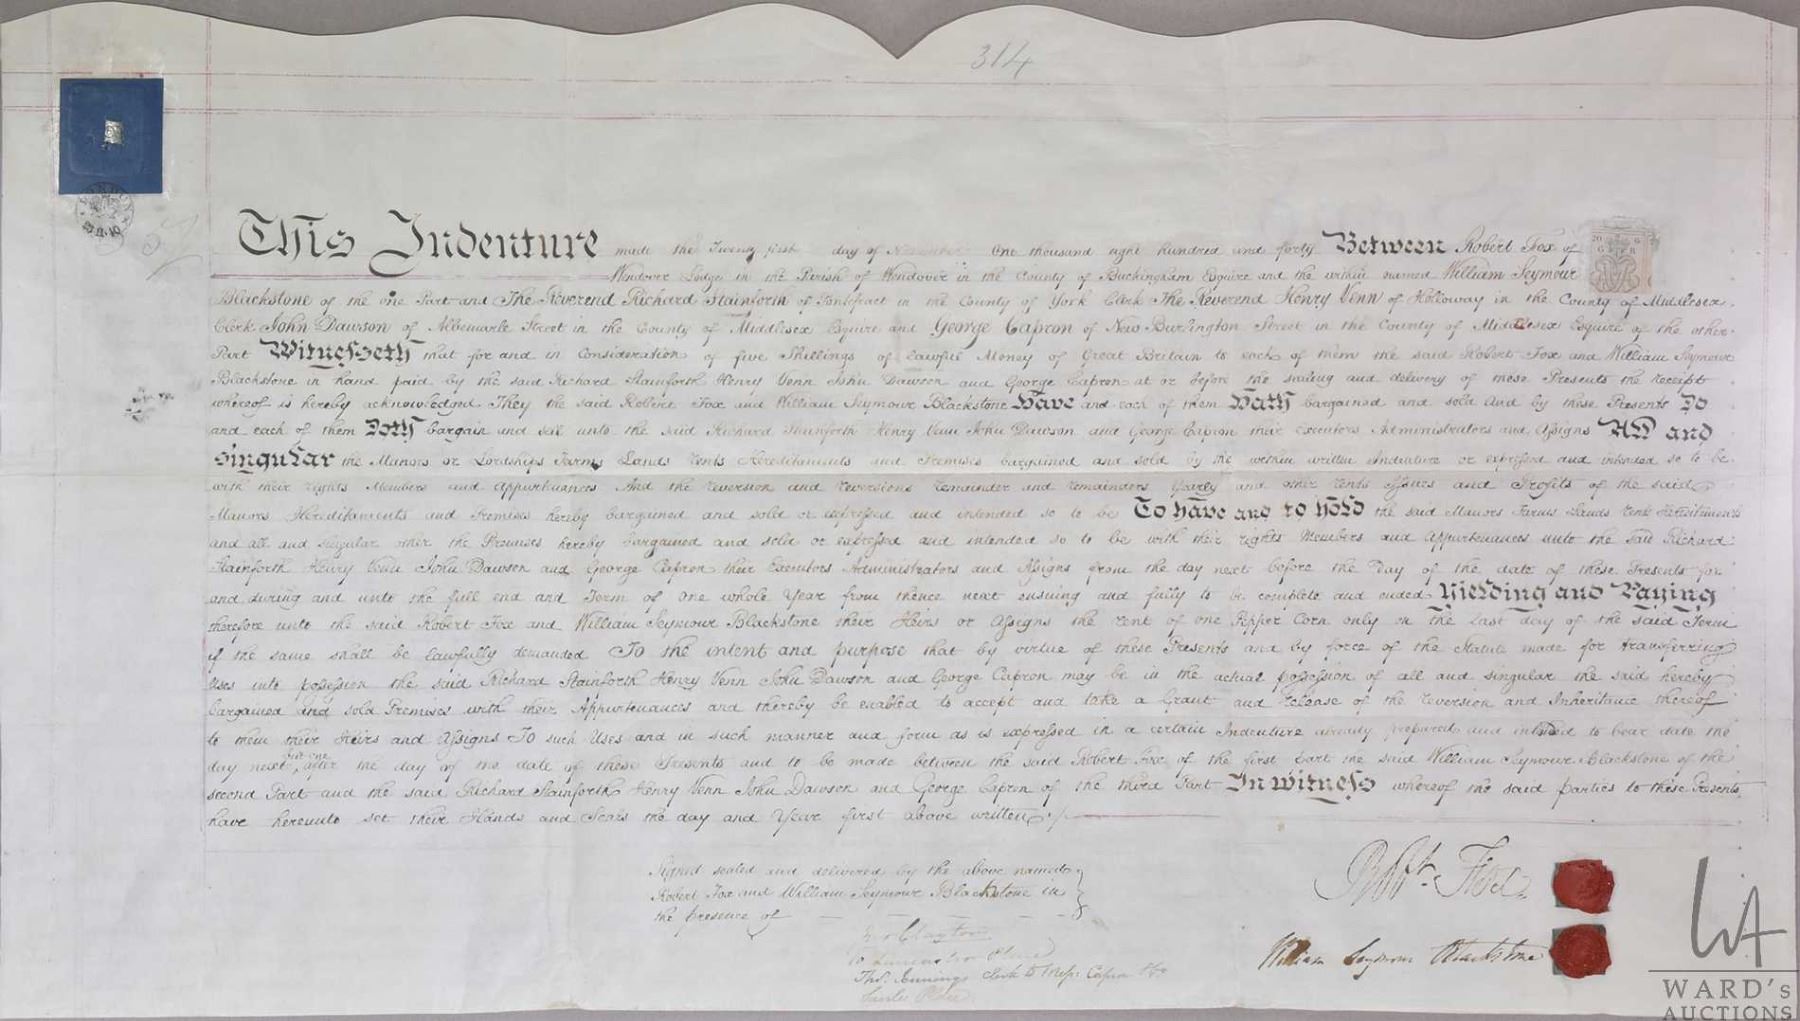 314
This Indenture made the Twenty first day of November One thousand eight hundred and forty Between Robert Fox of
Wendover Lodge in the Parish of Wendover in the County of Buckingham Esquire and the within named William Seymour
Blackstone of the one Part and The Reverend Richard Stainforth of Pontefract in the County of York Clerk The Reverend Henry Venn of Holloway in the County of Middlesex
Clerk John Dawson of Albemarle Street in the County of Middlesex Esquire and George Capron of New Burlington Street in the County of Middlesex Esquire of the other
Part Witnesseth that for and in Consideration of five Shillings of lawful Money of Great Britain to each of them the said Robert Fox and William Seymour
Blackstone in hand paid by the said Richard Stainforth Henry Venn John Dawson and George Capron at or before the sealing and delivery of these Presents the receipt
whereof is hereby acknowledged They the said Robert Fox and William Seymour Blackstone Have and each of them Hath bargained and sold and by these Presents Do
and each of them Doth bargain and sell unto the said Richard Stainforth Henry Venn John Dawson and George Capron their Executors Administrators and Assigns All and
Singular the Manors or Lordships Farms Lands rents Hereditaments and Premises bargained and sold by the within written Indenture or expressed and intended so to be
with their rights Members and appurtenances And the reversion and reversions remainder and remainders yearly and other rents Issues and Profits of the said
Manors Hereditaments and Premises hereby bargained and sold or expressed and intended so to be To have and to hold the said Manors Farms Lands rents Hereditaments
and all and singular other the Premises hereby bargained and sold or expressed and intended so to be with their rights Members and Appurtenances unto the said Richard
Stainforth Henry Venn John Dawson and George Capron their Executors Administrators and Assigns from the day next before the Day of the date of these Presents for
and during and unto the full end and Term of one whole Year from thence next ensuing and fully to be complete and ended Yielding and Paying
therefore unto the said Robert Fox and William Seymour Blackstone their Heirs or Assigns the rent of one Pepper Corn only on the Last day of the said Term
if the same shall be lawfully demanded To the intent and purpose that by virtue of these Presents and by force of the Statute made for transferring
Uses into possession the said Richard Stainforth Henry Venn John Dawson and George Capron may be in the actual possession of all and singular the said hereby
bargained and sold Premises with their Appurtenances and thereby be enabled to accept and take a Grant and release of the reversion and Inheritance thereof
to them their Heirs and Assigns To such Uses and in such manner and form as is expressed in a certain Indenture already prepared and intended to bear date the
day next but one after the day of the date of these Presents and to be made between the said Robert Fox of the first part the said William Seymour Blackstone of the
second Part and the said Richard Stainforth Henry Venn John Dawson and George Capron of the third Part In witness whereof the said parties to these Presents
have hereunto set their Hands and Seals the day and Year first above written
Signed sealed and delivered by the above named
Robert Fox and William Seymour Blackstone in
the presence of
Clayton
10 Lancaster Place
Thos. Jennings Clerk to Messrs Capron & Co
Savile Place
Robt. Fox
William Seymour Blackstone
WARD's
AUCTIONS